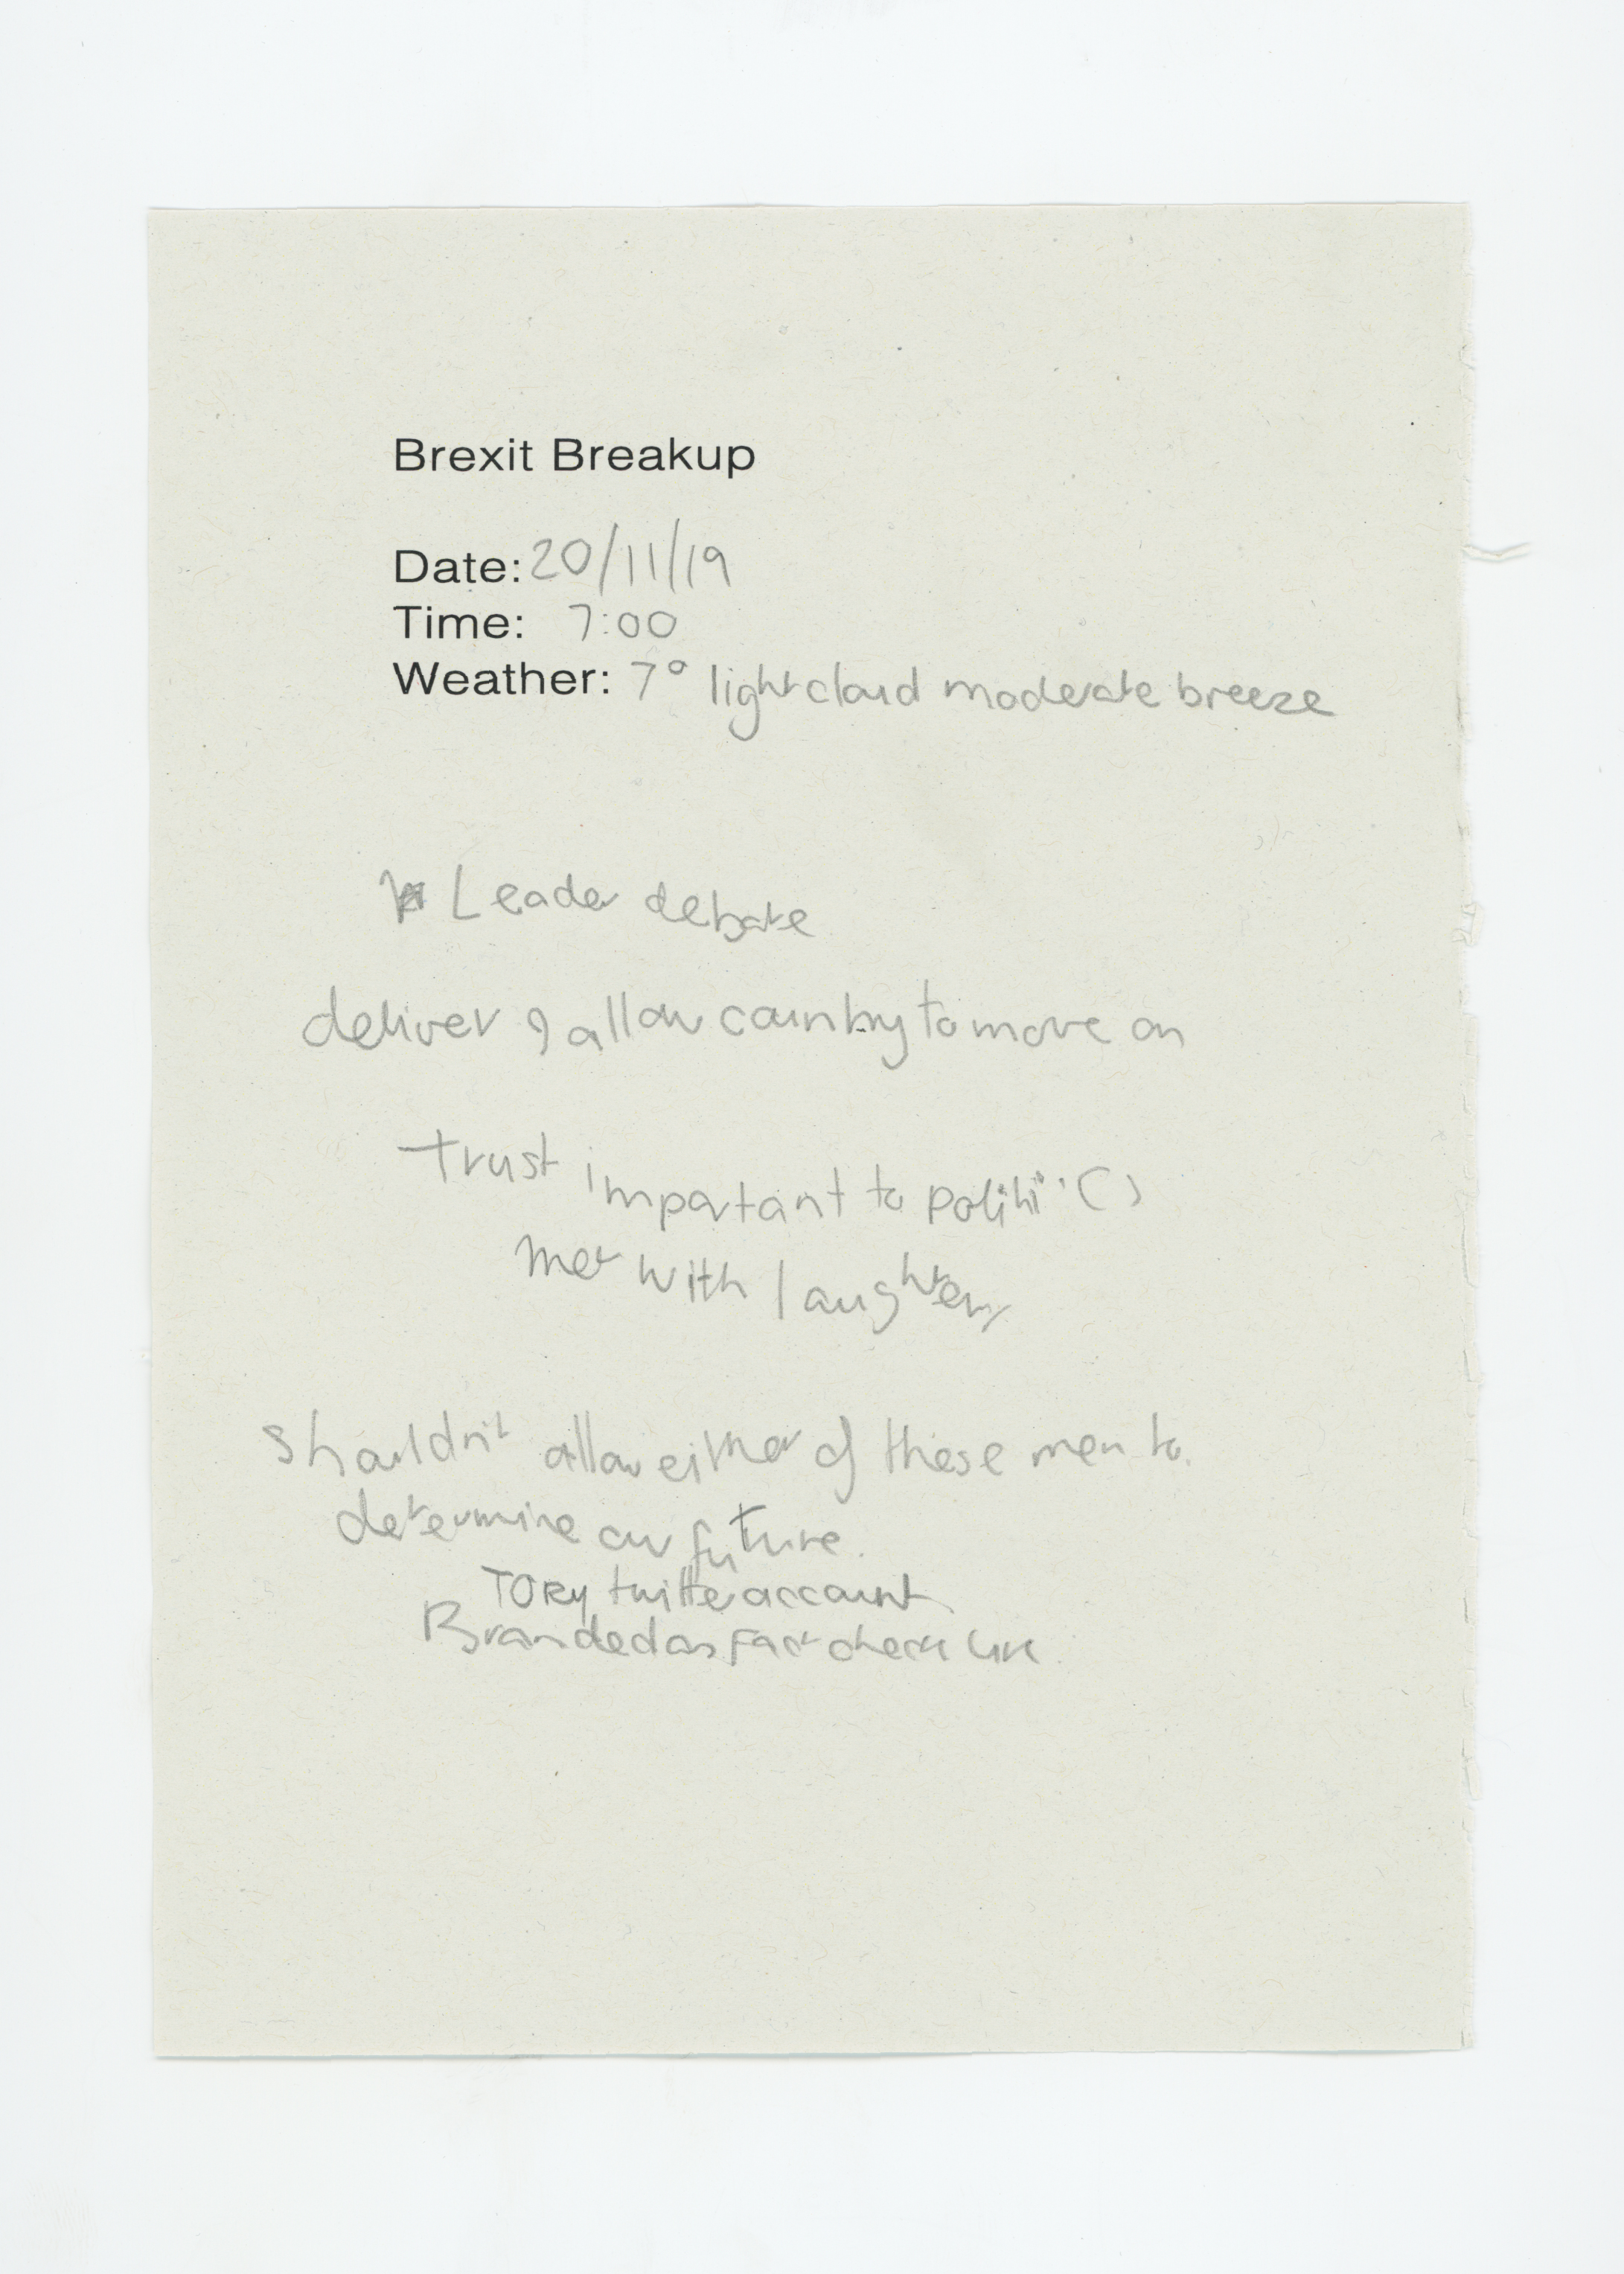 Brexit Breakup
Date: 20/11/19
Time: 7:00
Weather: 7° light cloud moderate breeze
Leader debate
deliver & allow country to move on
Trust important to
Met with laughter
Shouldn't allow either of these men to
determine our future.
TORY twitter account
Branded as Fact check UK